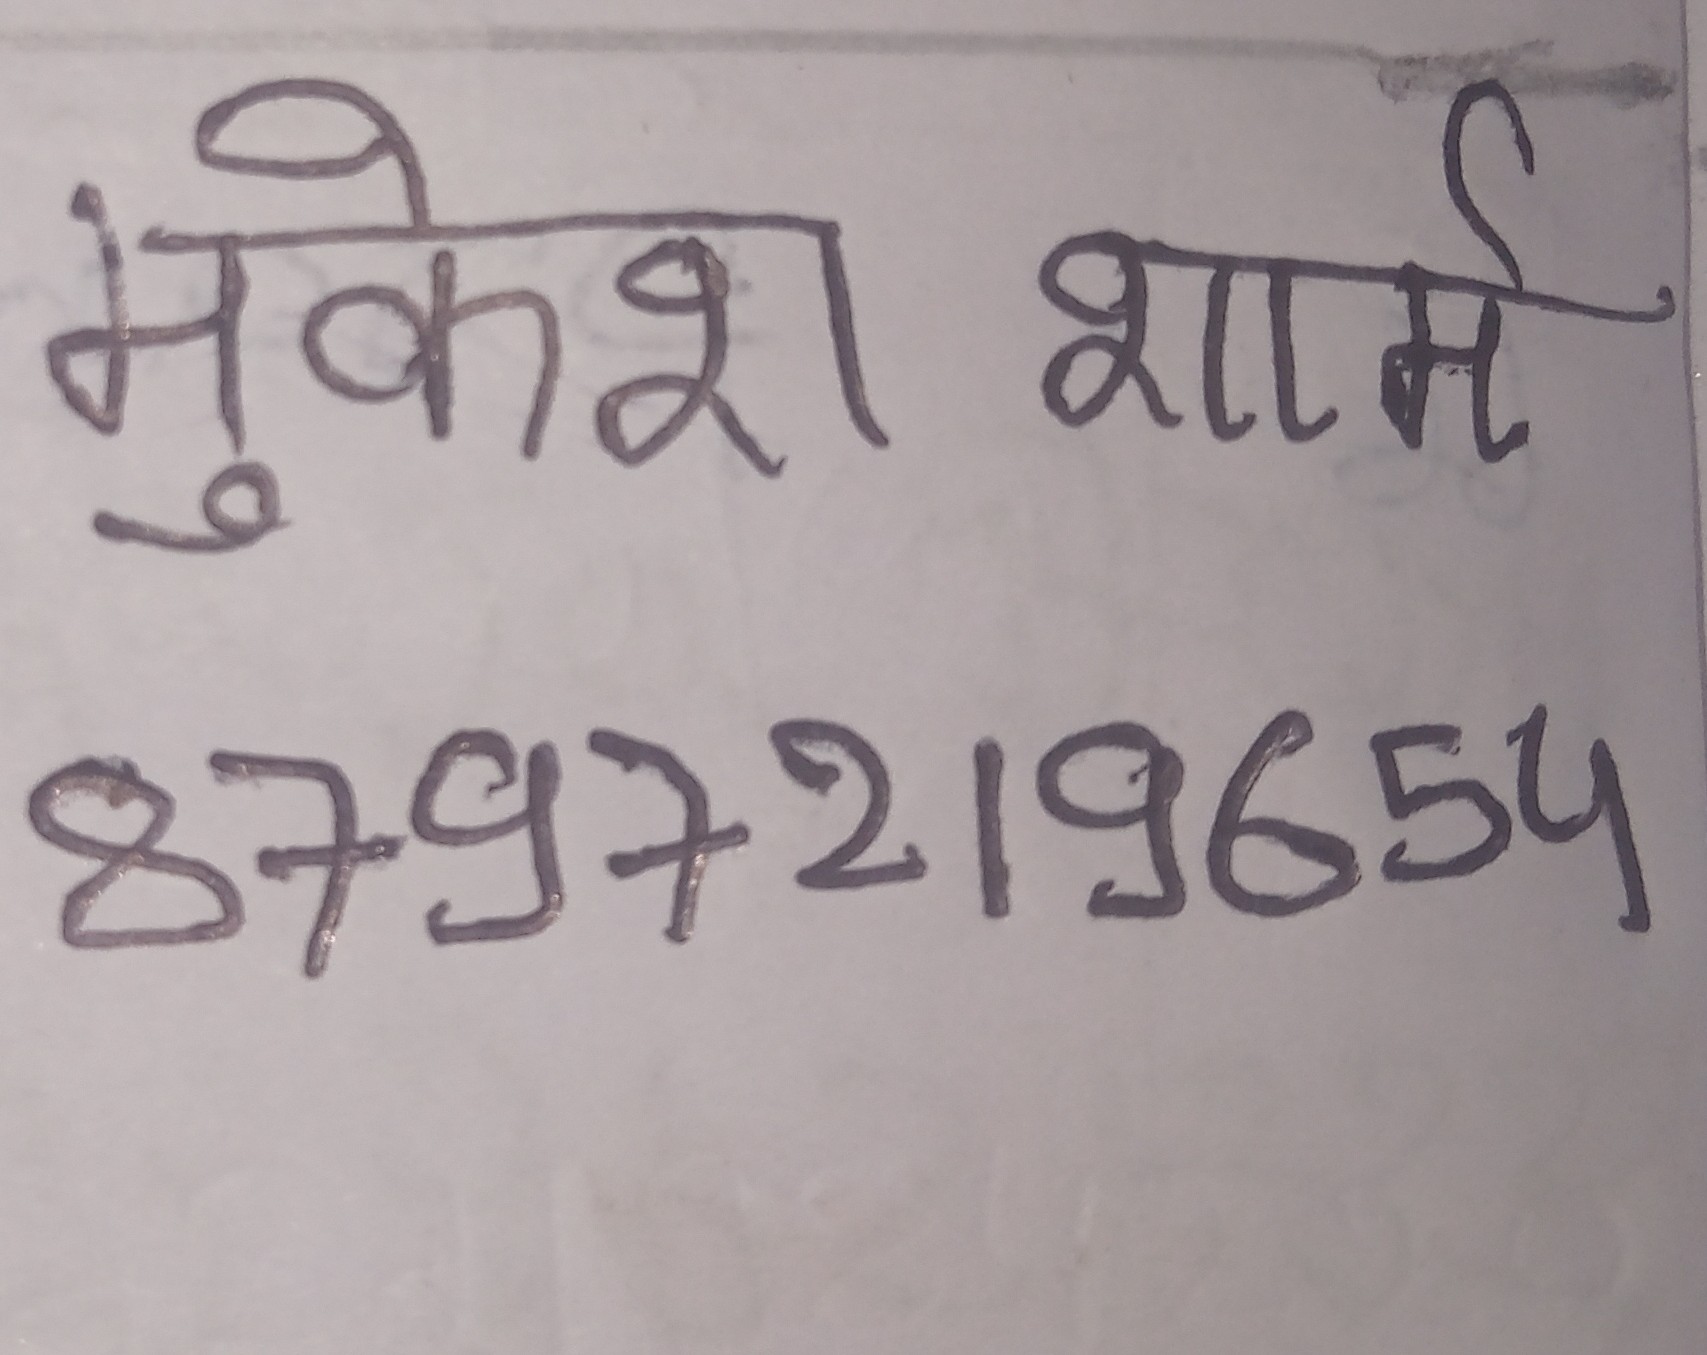 मुकेश शार्म
8797219654